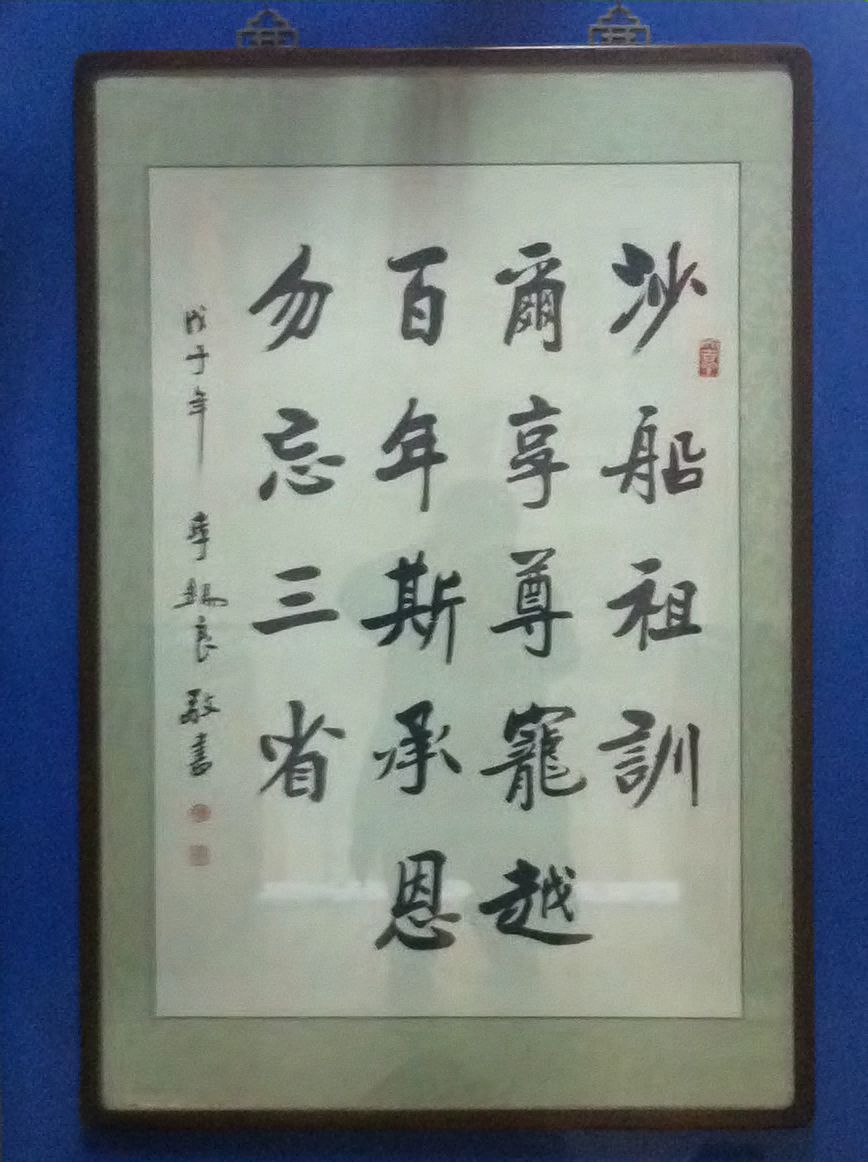 沙船祖訓
爾享尊寵越
百年斯承恩
勿忘三省
戊子年 李錫良敬書